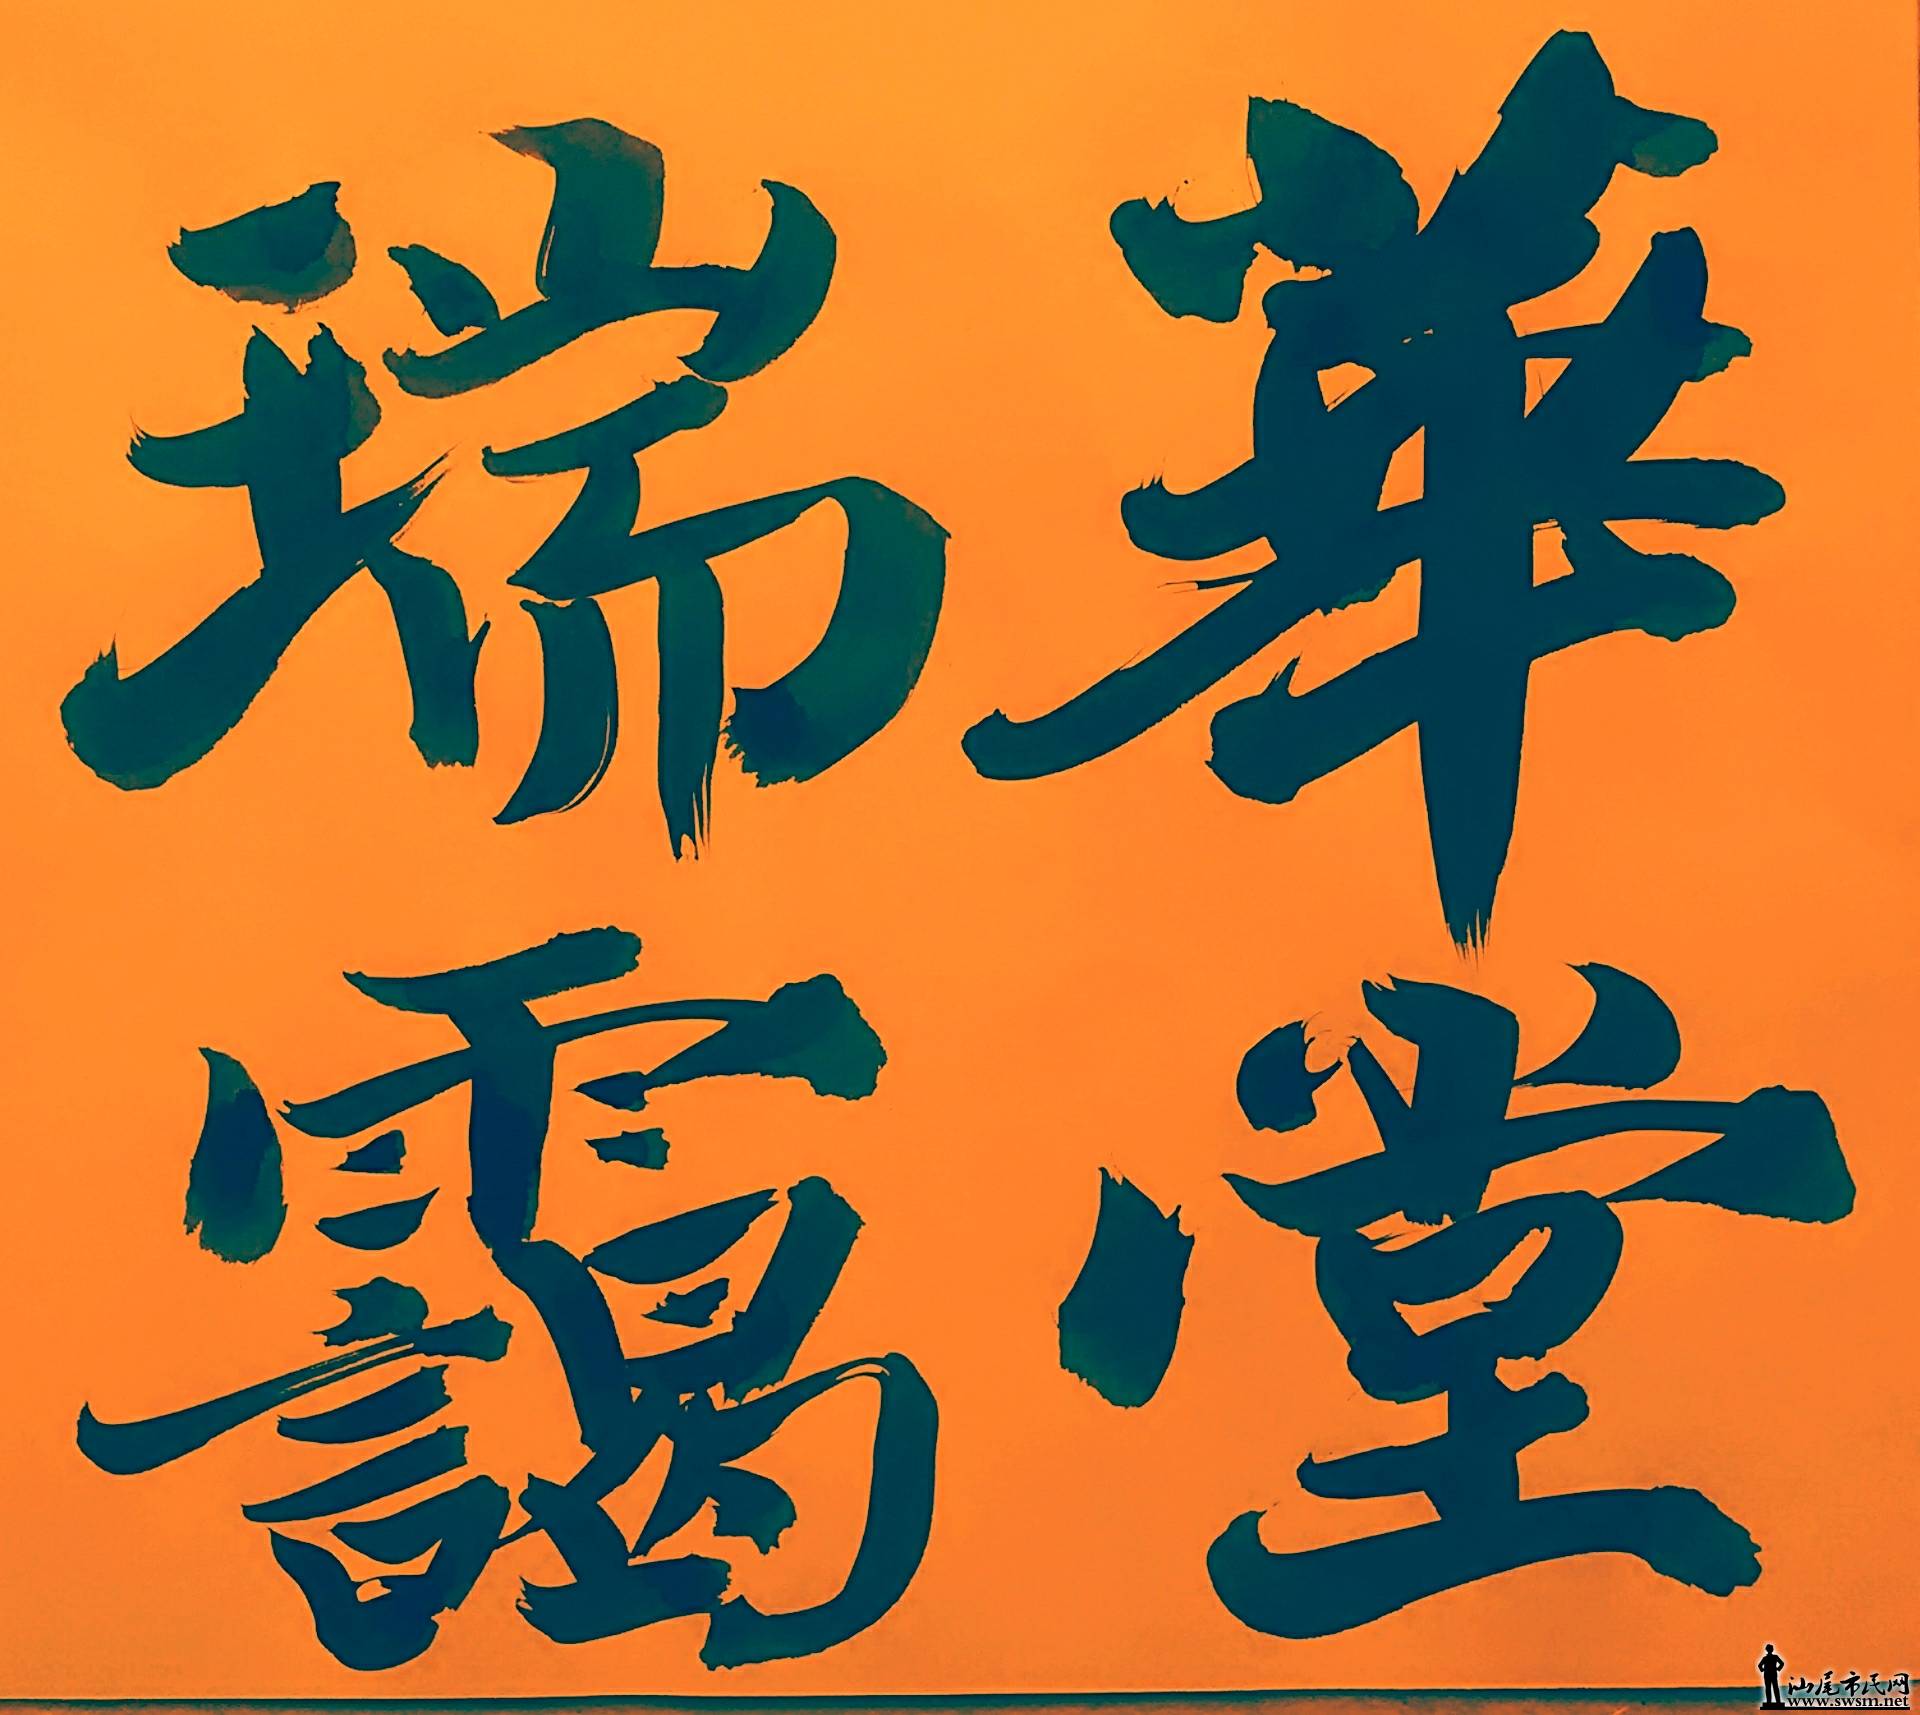 華堂
瑞靄
汕尾市民网
www.swsm.net